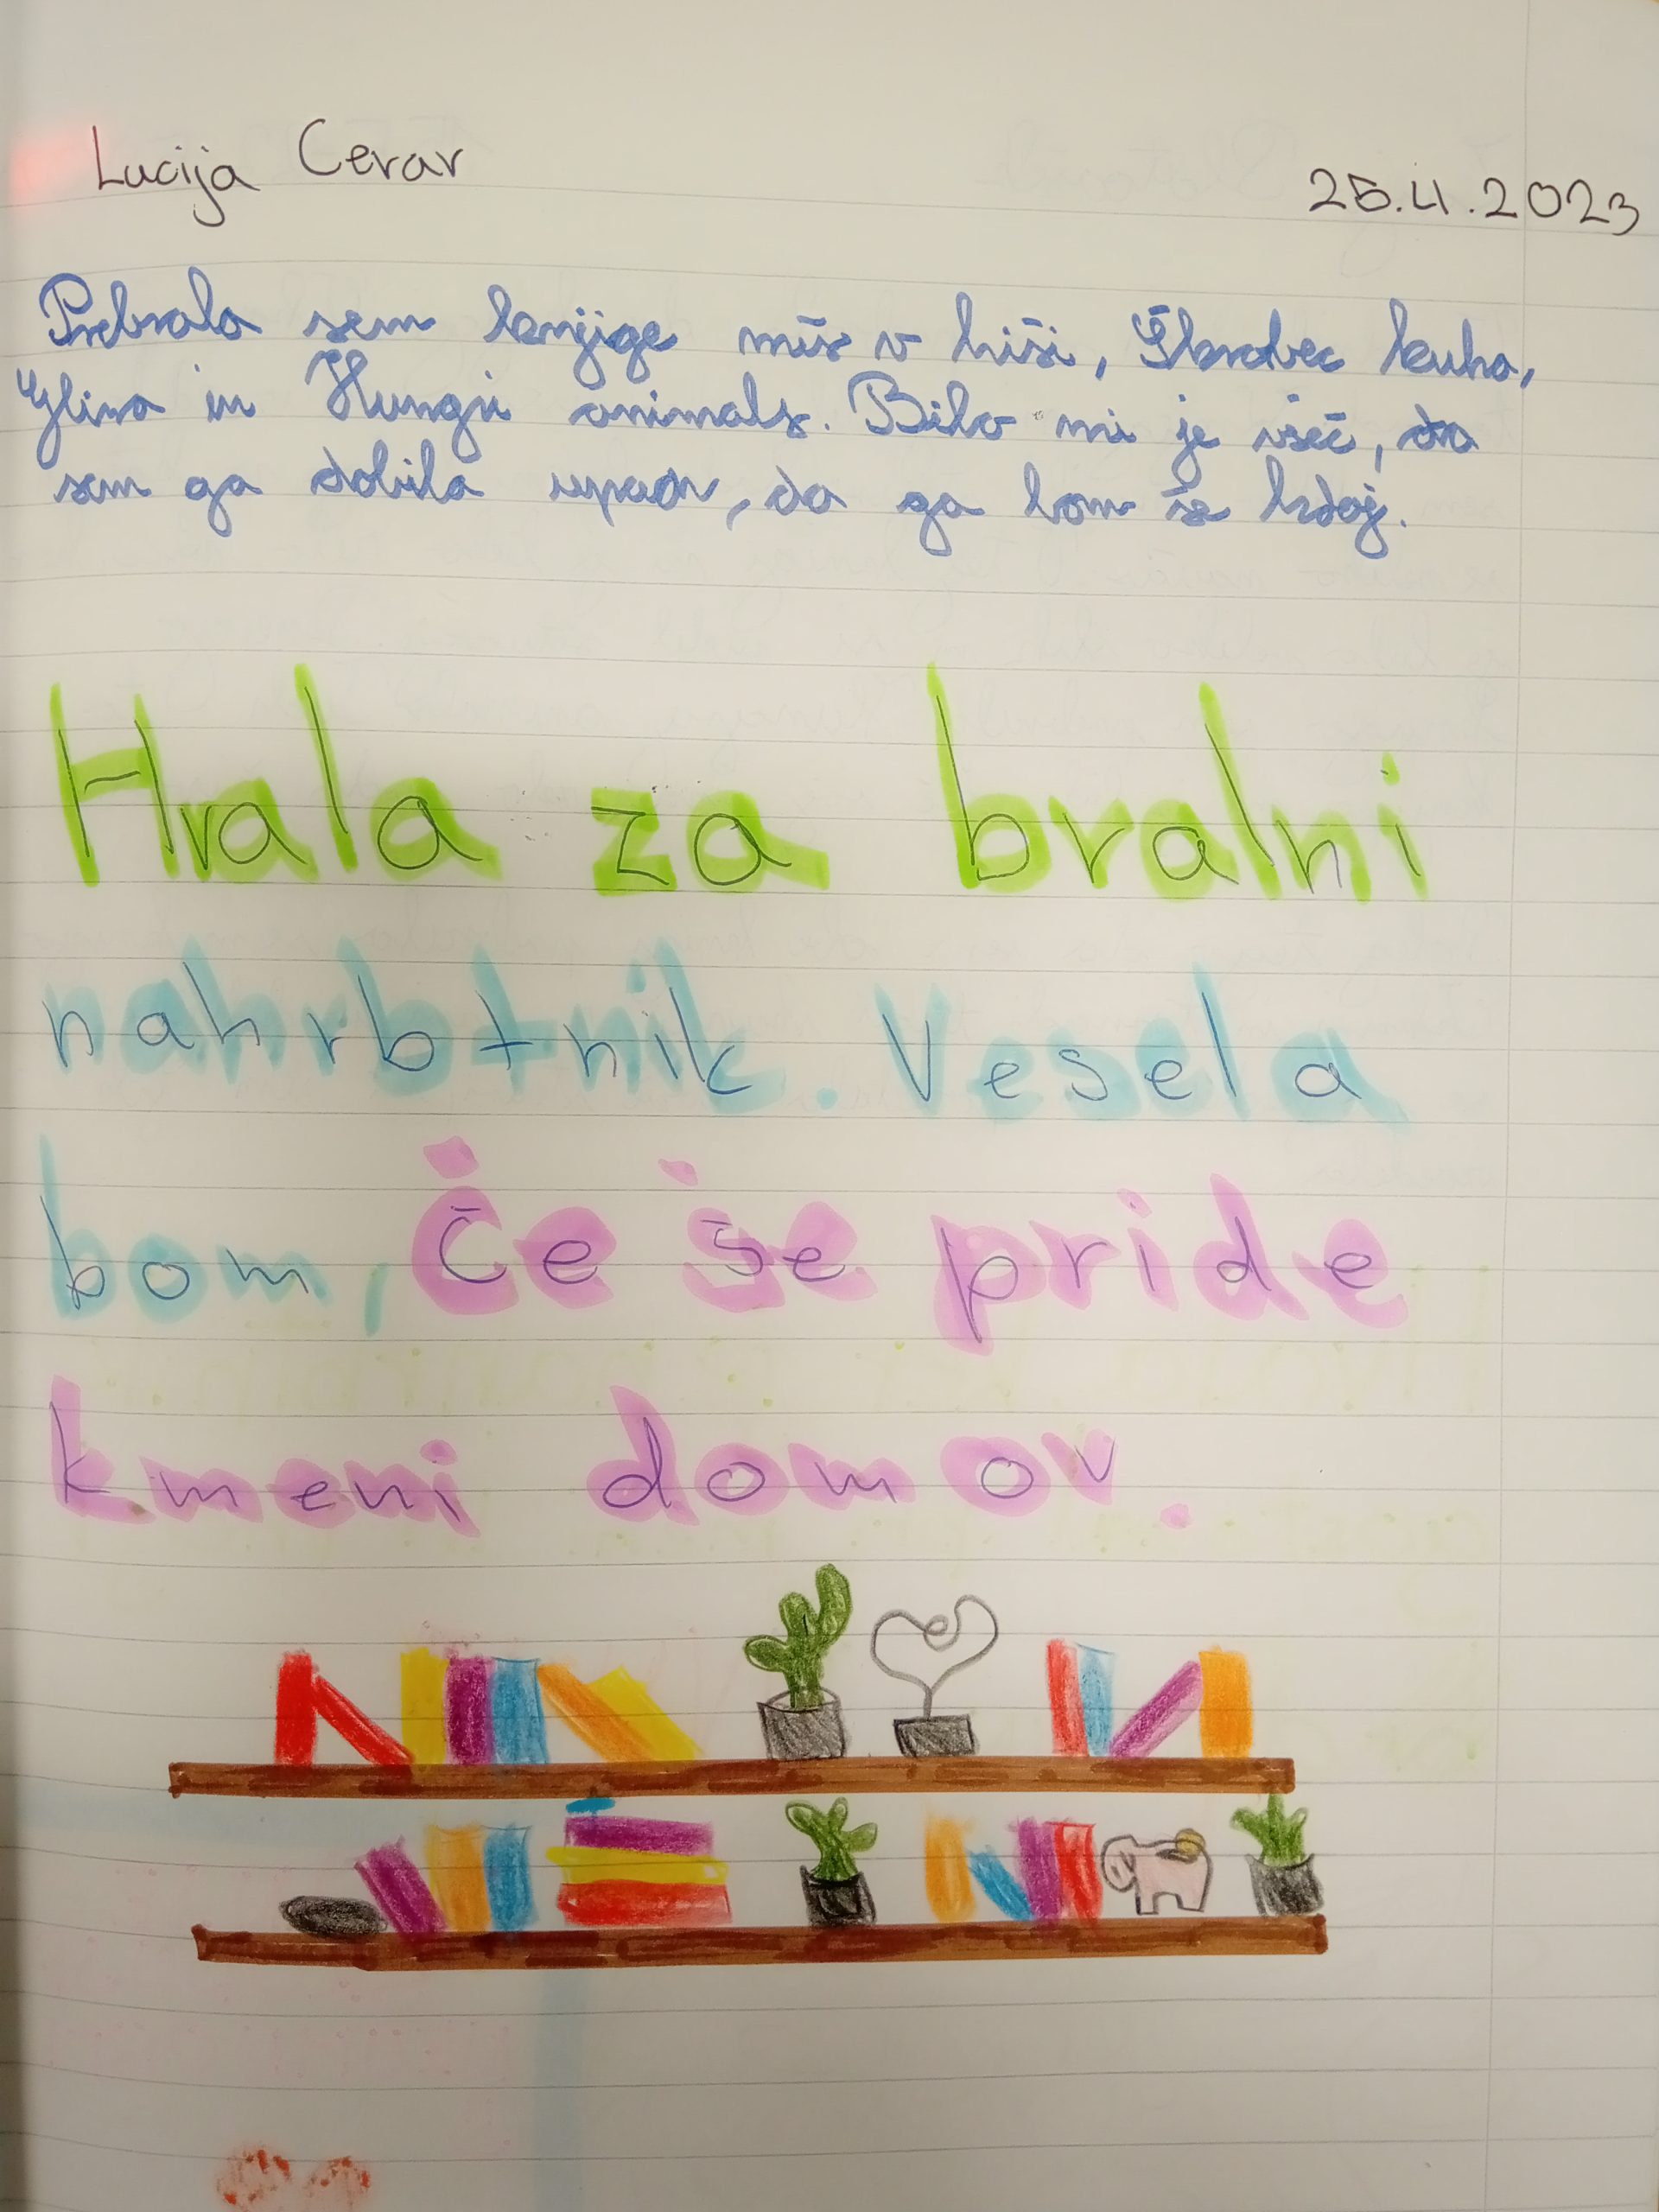 Lucija Cerar
25.4.2023
Prebrala sem knjige miš v hiši, Škrobec kuha,
Glina in Hungri animals. Bilo mi je všeč, da
sem ga dobila upam, da ga bom še kdaj.
Hvala za bralni
nahrbtnik. Vesela
bom, če še pride
kmeni domov.